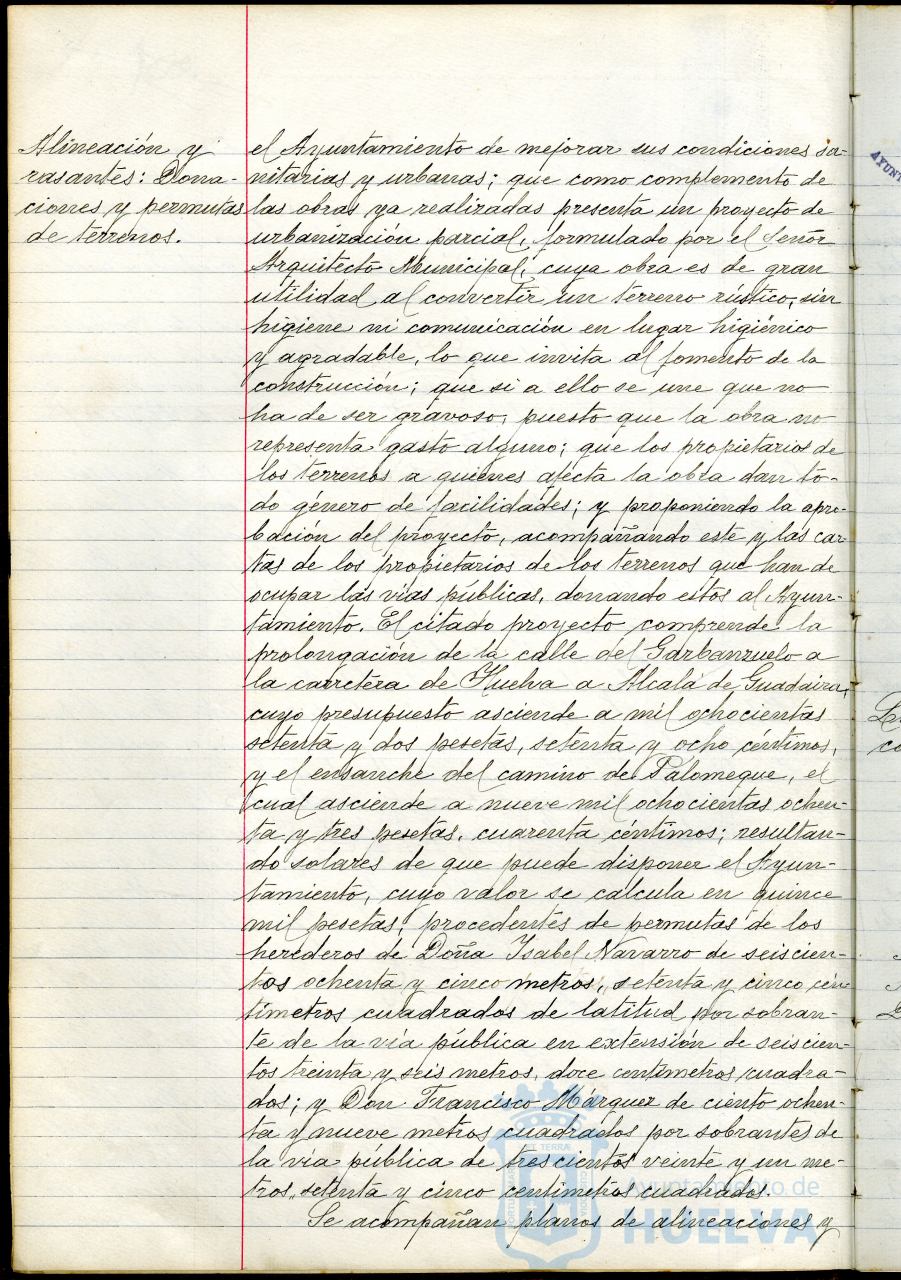 Alineación y
rasantes: Dona-
ciones y permutas
de terrenos.
el Ayuntamiento de mejorar sus condiciones sa-
nitarias y urbanas; que como complemento de
las obras ya realizadas presenta un proyecto de
urbanización parcial, formulado por el Señor
Arquitecto Municipal, cuya obra es de gran
utilidad al convertir un terreno rústico, sin
higiene ni comunicación en lugar higiénico
y agradable, lo que invita al fomento de la
construcción; que si a ello se une que no
ha de ser gravoso, puesto que la obra no
representa gasto alguno; que los propietarios de
los terrenos a quienes afecta la obra dan to-
do género de facilidades; y proponiendo la apro-
bación del proyecto, acompañando este y las car-
tas de los propietarios de los terrenos que han de
ocupar las vías públicas, donando estos al Ayun-
tamiento. El citado proyecto comprende la
prolongación de la calle del Garbanzuelo a
la carretera de Huelva a Alcalá de Guadaira,
cuyo presupuesto asciende a mil ochocientas
setenta y dos pesetas, setenta y ocho céntimos,
y el ensanche del camino de Palomeque, el
cual asciende a nueve mil ochocientas ochen-
ta y tres pesetas, cuarenta céntimos; resultan-
do solares de que puede disponer el Ayun-
tamiento, cuyo valor se calcula en quince
mil pesetas, procedentes de permutas de los
herederos de Doña Isabel Navarro de seiscien-
tos ochenta y cinco metros, setenta y cinco cen-
tímetros cuadrados de latitud por sobran-
te de la vía pública en extensión de seiscien-
tos treinta y seis metros, doce centímetros cuadra-
dos; y Don Francisco Márquez de ciento ochen-
ta y nueve metros cuadrados por sobrantes de
la vía pública de trescientos veinte y un me-
tros, setenta y cinco centímetros cuadrados.
Se acompañan planos de alineaciones y
Ayuntamiento de
HUELVA